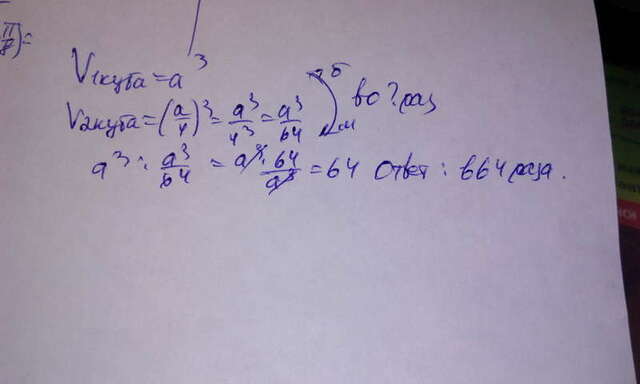 π/8)=
V1куба = a³
V2куба = (a/4)³ = a³/4³ = a³/64 б м во ? раз
a³ : a³/64 = a³ · 64/a³ = 64 Ответ : в 64 раза.